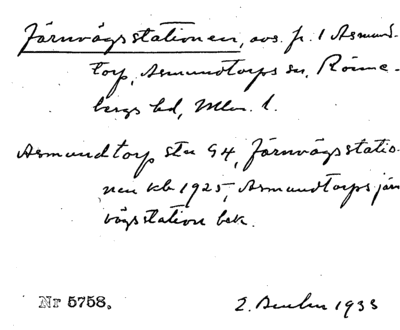 Järnvägsstationen, avs. fr. 1 Asmund-
torp, Asmundtorps sn, Rönne-
bergs hd, Mlm. l.
Asmundtorp stn 94, Järnvägsstatio-
nen kb 1925, Asmundtorps järn
vägsstation bek.
Nr 5758.
2. 1933